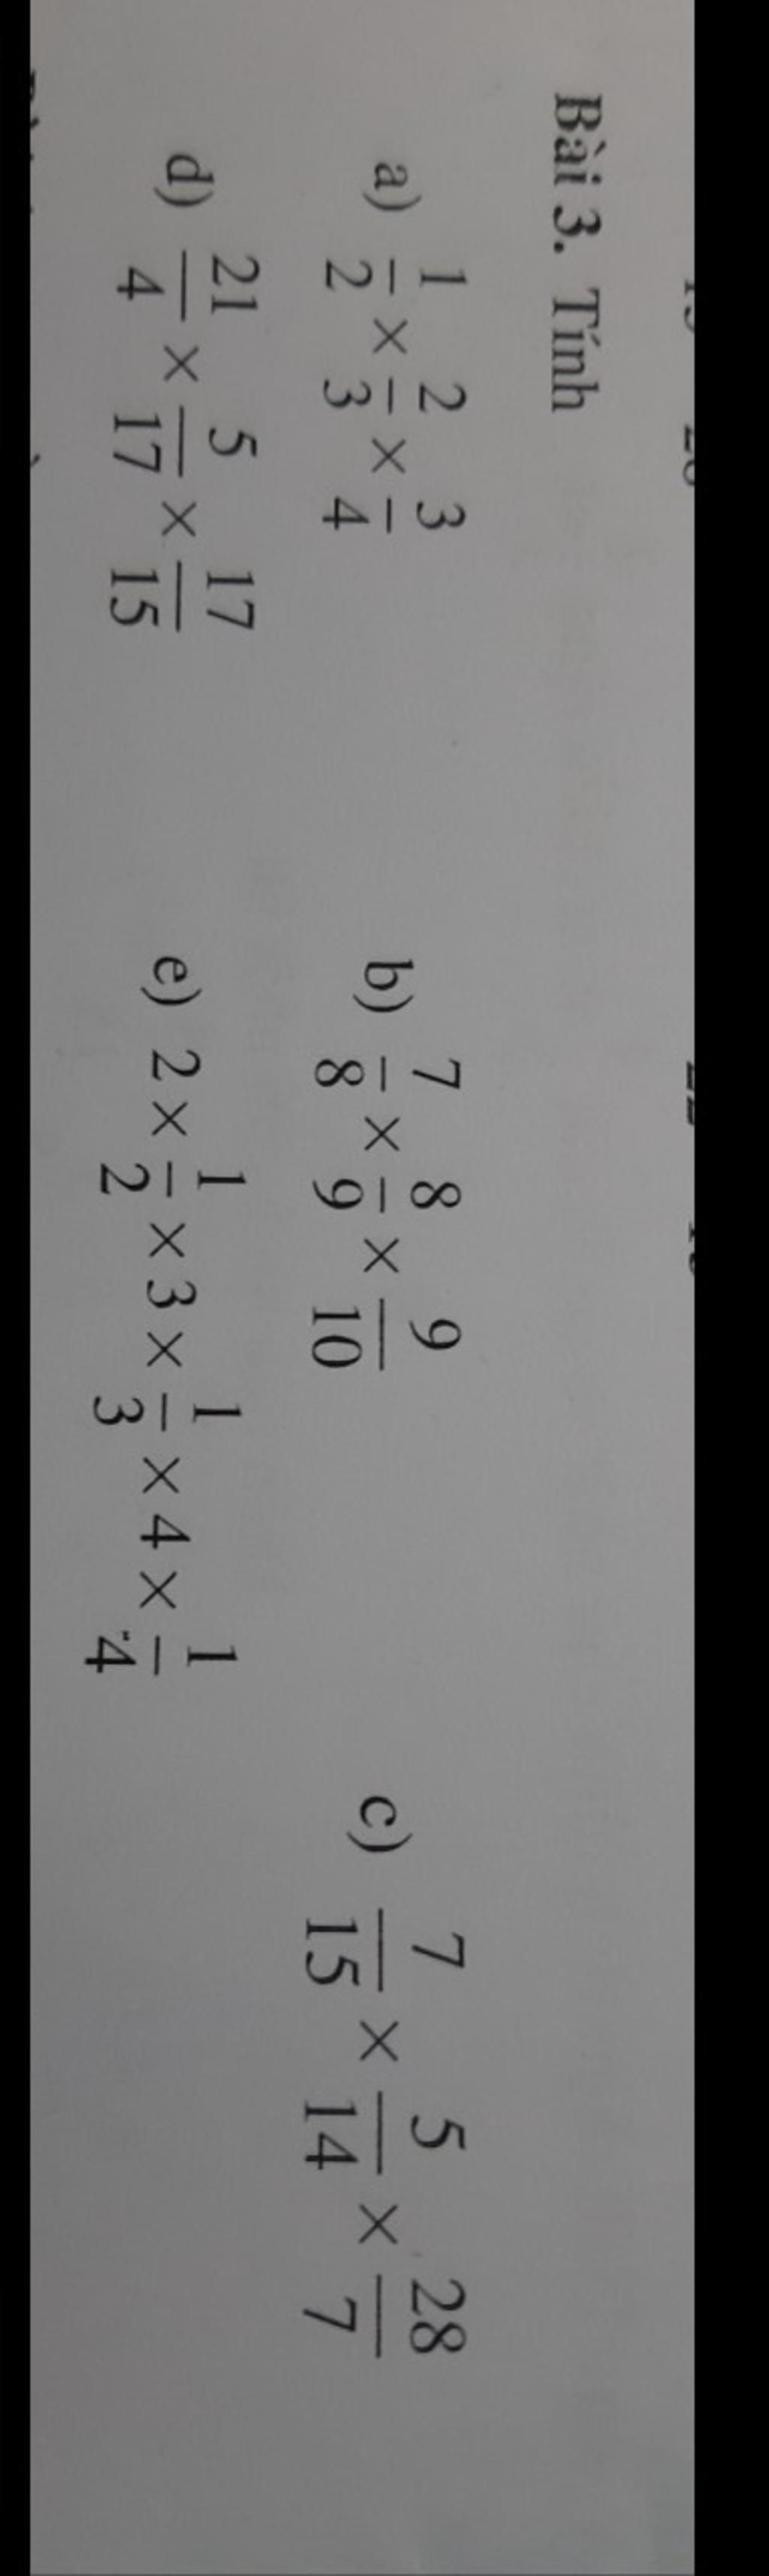 Bài 3. Tính
a) 1/2 × 2/3 × 3/4 b) 7/8 × 8/9 × 9/10 c) 7/15 × 5/14 × 28/7
d) 21/4 × 5/17 × 17/15 e) 2 × 1/2 × 3 × 1/3 × 4 × 1/4